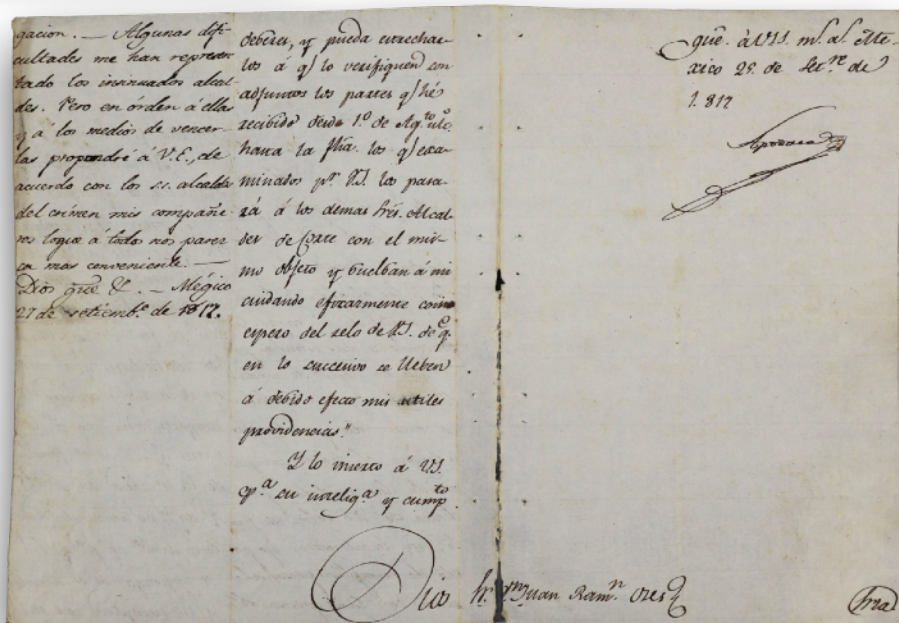 gacion. — Algunas difi-
cultades me han represen
tado los insinuados alcal-
des. Pero en órden á ellas
y á los medios de vencer-
las propondré á V.E., de
acuerdo con los s.s. alcaldes
del crímen mis compañe-
ros logió á todos nos parez
ca mas conveniente. —
Dios gue. &. — Mégico
27 de setiemb.e de 1817.
deberes, y pueda estrechar-
los á q.e lo verifiquen con
adjuntos los partes q.e hé
recibido desde 1.o de Ag.to ulo.
hasta la fha. los q.e exa-
minados p.r VS. los pasa-
rá á los demas Sres. Alcal-
des de Corte con el mis-
mo objeto y buelban á mi
cuidando eficazmente como
espero del zelo de VS. de q.e
en lo succesivo se lleben
á debido efecto mis utiles
providencias."
Y lo inserto á VS.
p.a su intelig.a y cump.to
Dios
gue. á VS. m.s a.s Me-
xico 29. de Set.re de
1.817
Apodaca
Sr. Dn. Juan Ram.n Oses